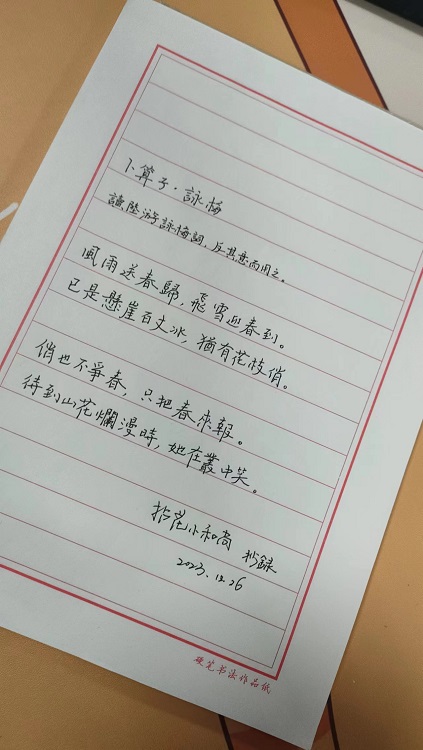 卜算子·詠梅
讀陸游詠梅詞，反其意而用之。
風雨送春歸，飛雪迎春到。
已是懸崖百丈冰，猶有花枝俏。
俏也不爭春，只把春來報。
待到山花爛漫時，她在叢中笑。
拈花小和尚 抄録
2023.12.26
硬笔书法作品纸